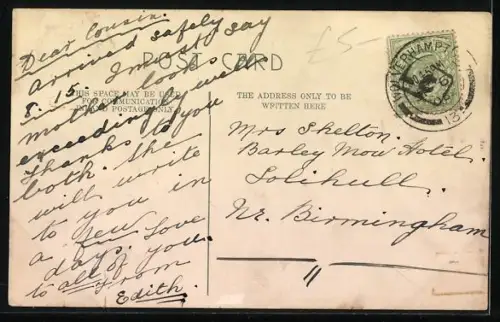 Dear Cousin.
Arrived safely
8.15. I must say
mother looks
exceedingly well
Thanks to you
both. She
will write
to you in
a few
days. Love
to all of you.
From
Edith.
£5-
POST CARD
THIS SPACE MAY BE USED
FOR COMMUNICATION
POSTAGE ONLY
THE ADDRESS ONLY TO BE
WRITTEN HERE
Mrs Skelton.
Barley Mow Hotel.
Solihull.
Nr. Birmingham
WOLVERHAMPTON